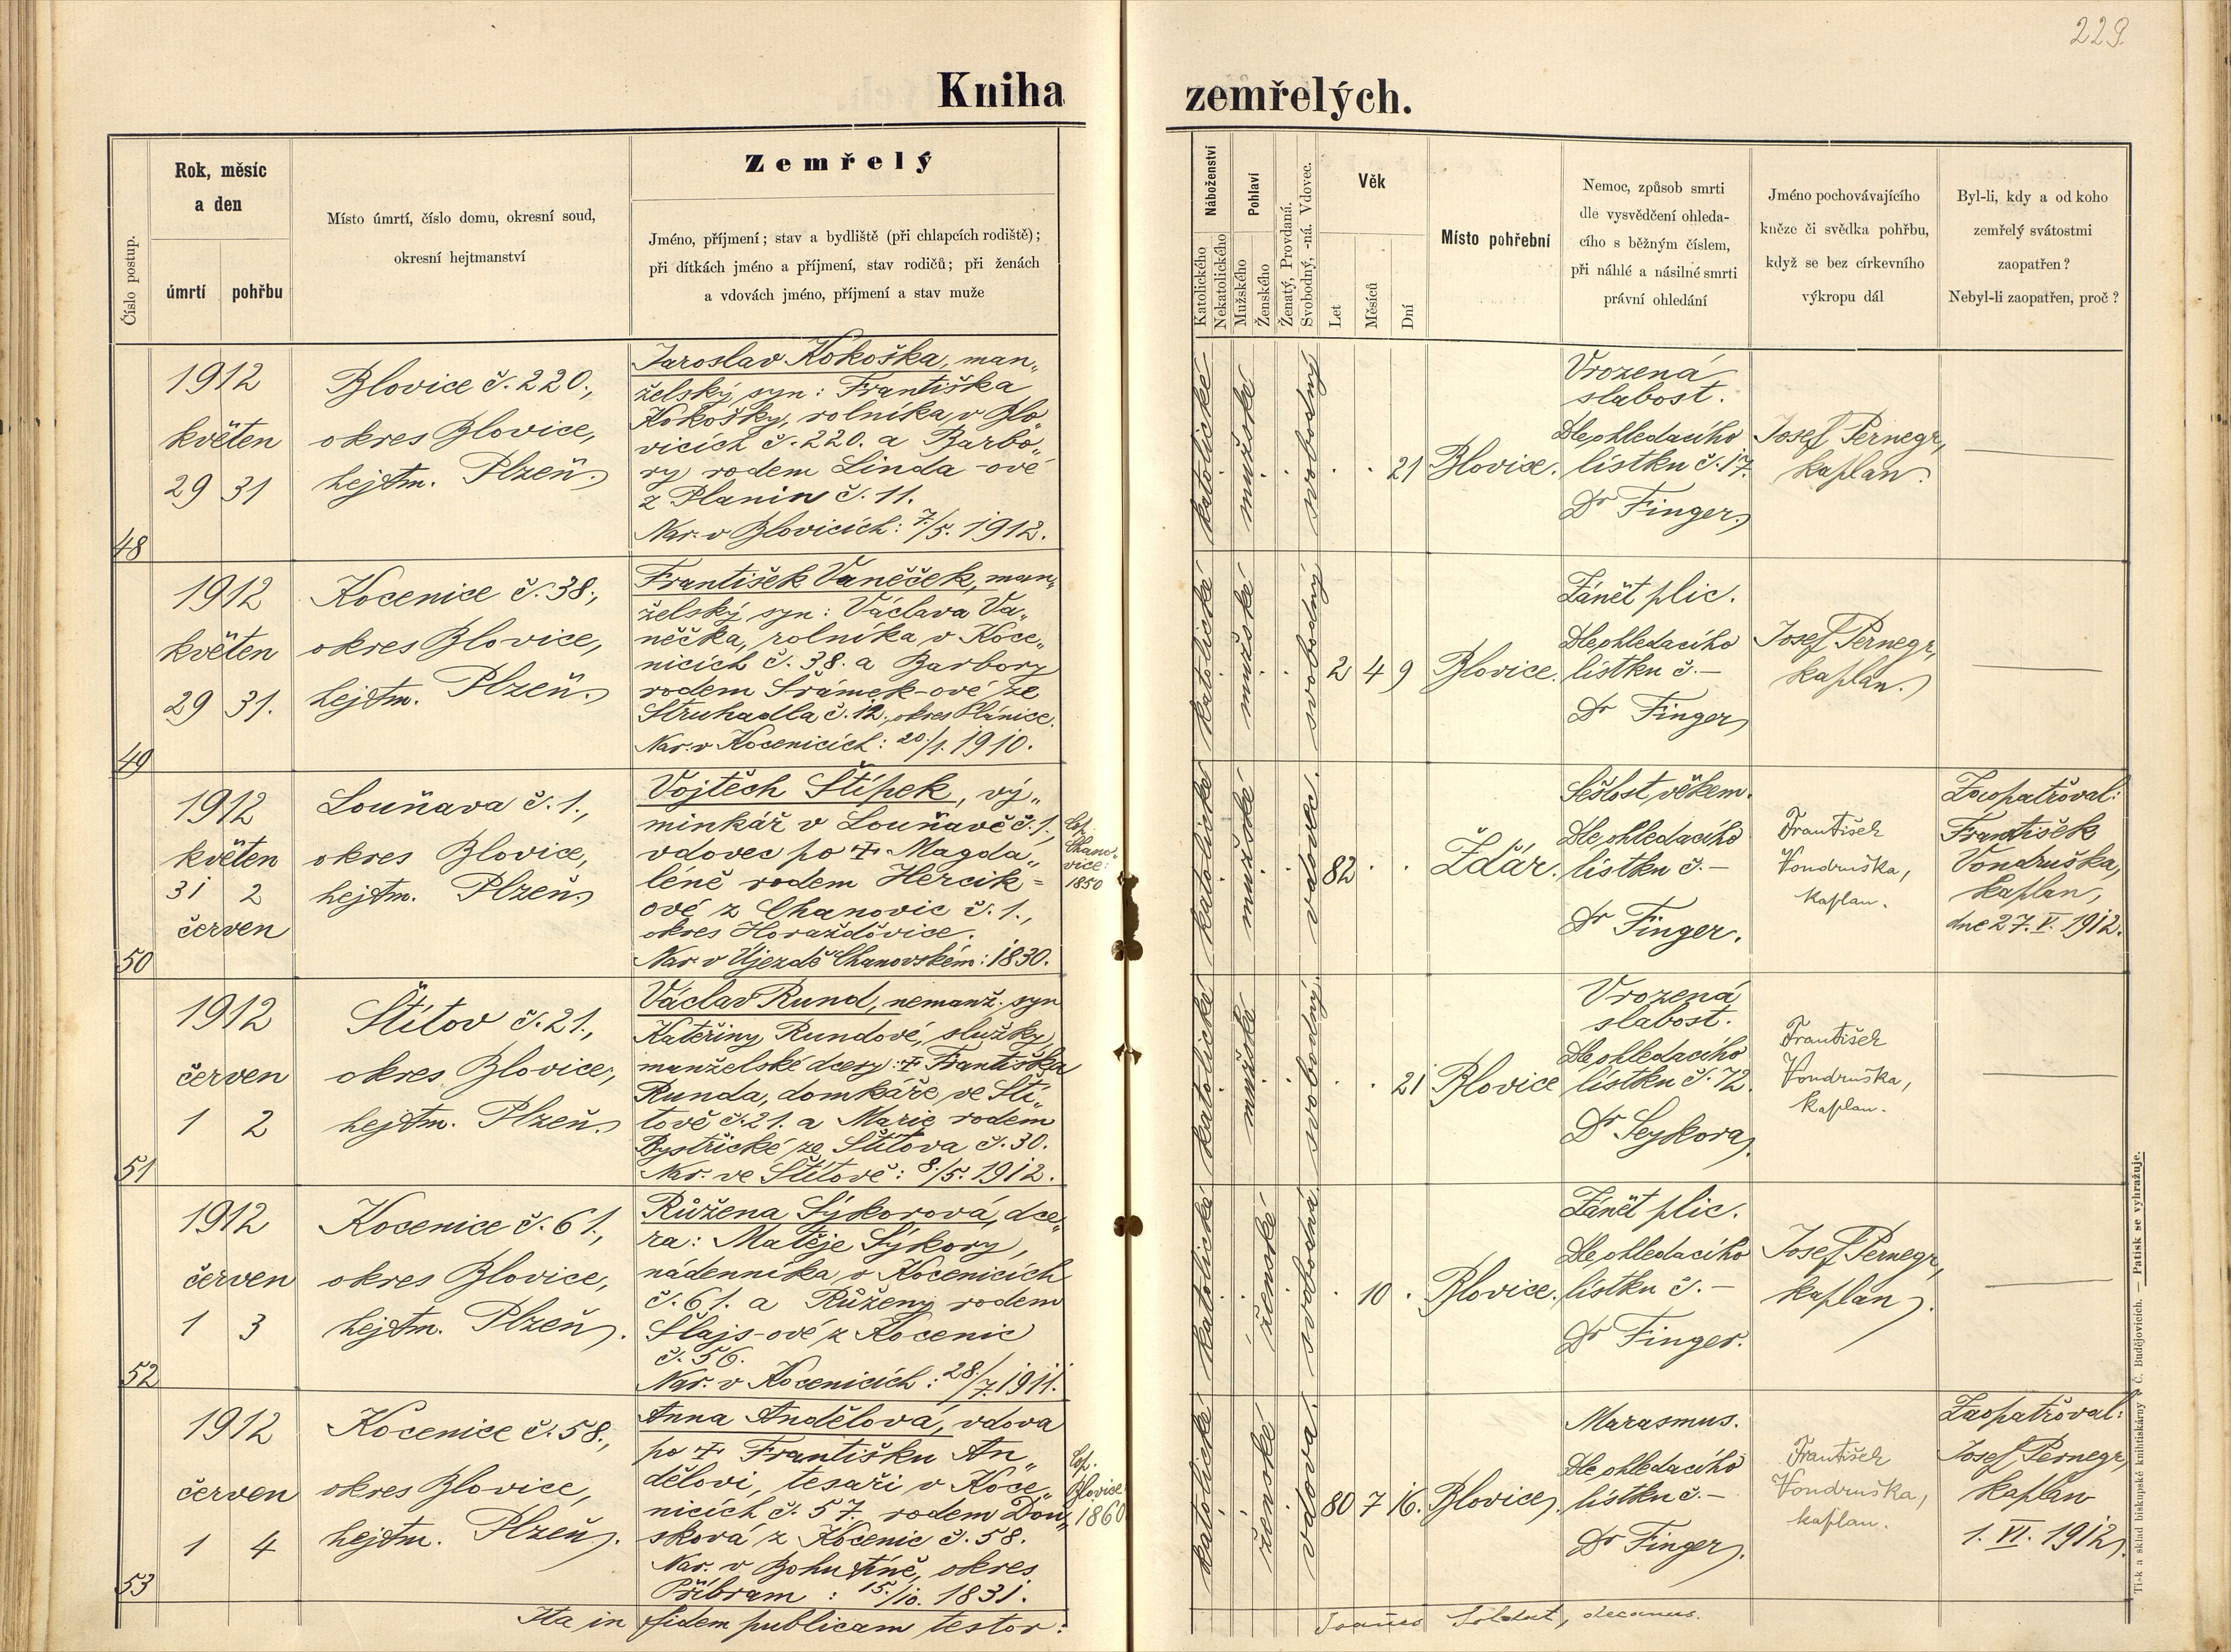 229.
Kniha zemřelých.
Číslo postup.
Rok, měsíc
a den
úmrtí
pohřbu
Místo úmrtí, číslo domu, okresní soud,
okresní hejtmanství
Zemřelý
Jméno, příjmení; stav a bydliště (při chlapcích rodiště);
při dítkách jméno a příjmení, stav rodičů; při ženách
a vdovách jméno, příjmení a stav muže
Náboženství
Katolického
Nekatolického
Pohlaví
Mužského
Ženského
Ženatý, Provdaná.
Svobodný, -ná. Vdovec.
Věk
Let
Měsíců
Dní
Místo pohřební
Nemoc, způsob smrti
dle vysvědčení ohleda-
cího s běžným číslem,
při náhlé a násilné smrti
právní ohledání
Jméno pochovávajícího
kněze či svědka pohřbu,
když se bez církevního
výkropu dál
Byl-li, kdy a od koho
zemřelý svátostmi
zaopatřen?
Nebyl-li zaopatřen, proč?
48
1912
květen
29 31
Blovice č. 220.,
okres Blovice,
hejtm. Plzeň.
Jaroslav Kokoška, man„
želský syn: Františka
Kokošky, rolníka v Blo„
vicích č. 220. a Barbo„
ry rodem Linda-ové
z Planin č. 11.
Nar. v Blovicích: 7./5. 1912.
katolické
mužské
svobodný
21
Blovice.
Vrozená
slabost.
Dle ohledacího
lístku č. 17.
Dr Finger.
Josef Pernegr,
kaplan.
49
1912
květen
29 31.
Kocenice č. 38.,
okres Blovice,
hejtm. Plzeň.
František Vaněček, man„
želský syn: Václava Va„
něčka, rolníka v Koce„
nicích č. 38. a Barbory
rodem Šrámek-ové ze
Struhadla č. 12., okres Plánice.
Nar. v Kocenicích: 20./1. 1910.
katolické
mužské
svobodný
2 4 9
Blovice.
Zánět plic.
Dle ohledacího
lístku č. –
Dr Finger
Josef Pernegr,
kaplan.
50
1912
květen
31 2
červen
Louňava č. 1.,
okres Blovice,
hejtm. Plzeň.
Vojtěch Štípek, vý„
minkář v Louňavě č. 1.,
vdovec po † Magda„
léně rodem Hercik-
ové z Chanovic č. 1.,
okres Horažďovice.
Nar. v Újezdě Chanovském: 1830.
Cop.
Chano„
vice:
1850
katolické
mužské
vdovec.
82
Ždár.
Sešlost věkem.
Dle ohledacího
lístku č. –
Dr Finger.
František
Vondruška,
kaplan.
Zaopatřoval:
František
Vondruška,
kaplan,
dne 27. V. 1912.
51
1912
červen
1 2
Štítov č. 21.,
okres Blovice,
hejtm. Plzeň.
Václav Rund, nemanž. syn
Kateřiny Rundové, služky,
manželské dcery: † Františka
Runda, domkáře ve Ští„
tově č. 21. a Marie rodem
Bystřické ze Štítova č. 30.
Nar. ve Štítově: 8./5. 1912.
katolické
mužské
svobodný
21
Blovice
Vrozená
slabost.
Dle ohledacího
lístku č. 72.
Dr Seykora
František
Vondruška,
kaplan.
52
1912
červen
1 3
Kocenice č. 61.,
okres Blovice,
hejtm. Plzeň.
Růžena Sýkorová, dce„
ra: Matěje Sýkory,
nádenníka v Kocenicích
č. 61. a Růženy rodem
Šlajs-ové z Kocenic
č. 56.
Nar. v Kocenicích: 28./7. 1911.
katolické
ženské
svobodná
10
Blovice.
Zánět plic.
Dle ohledacího
lístku č. –
Dr Finger.
Josef Pernegr,
kaplan.
53
1912
červen
1 4
Kocenice č. 58.,
okres Blovice,
hejtm. Plzeň.
Anna Andělová, vdova
po † Františku An„
dělovi, tesaři v Koce„
nicích č. 57. rodem Don„
sková z Kocenic č. 58.
Nar. v Bohutíně, okres
Příbram: 15./10. 1831.
Cop.
Blovice
1860
katolické
ženské
vdova.
80 7 16.
Blovice.
Marasmus.
Dle ohledacího
lístku č. –
Dr Finger.
František
Vondruška,
kaplan.
Zaopatřoval:
Josef Pernegr,
kaplan
1. VI. 1912.
Ita in fidem publicam testor:
Joannes Soldat, decanus.
Tisk a sklad biskupské knihtiskárny v Č. Budějovicích. — Patisk se vyhražuje.